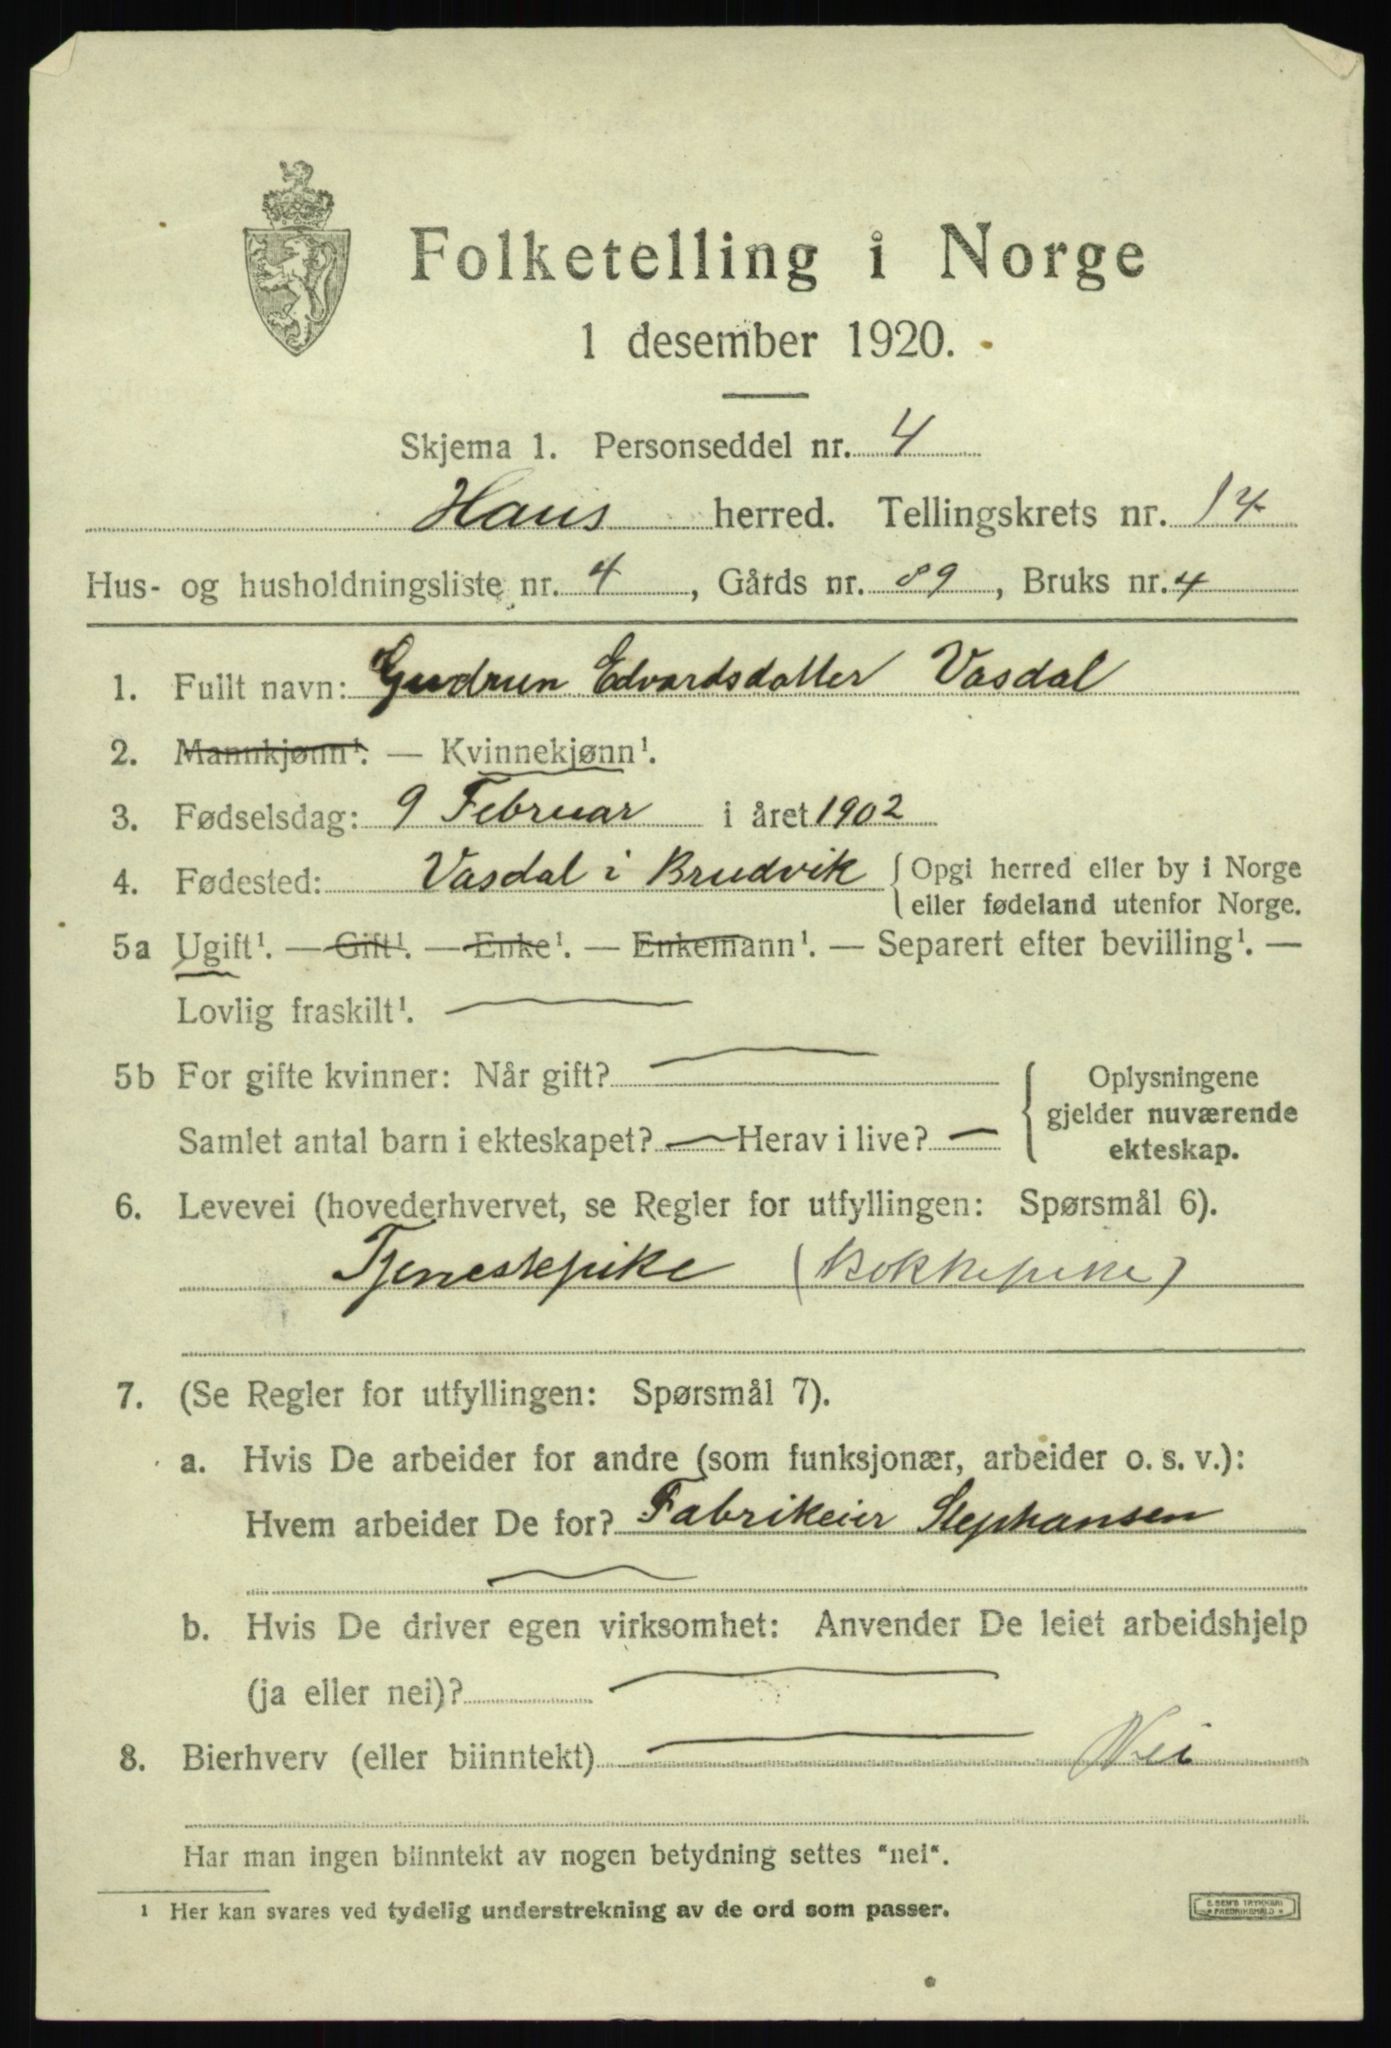 Folketelling i Norge
1 desember 1920.
Skjema 1. Personseddel nr. 4
Haus herred. Tellingskrets nr. 14
Hus- og husholdningsliste nr. 4, Gårds nr. 89, Bruks nr. 4
1. Fullt navn: Gudrun Edvardsdatter Vasdal
2. Mannkjønn¹. — Kvinnekjønn¹.
3. Fødselsdag: 9 Februar i året 1902
4. Fødested: Vasdal i Brudvik { Opgi herred eller by i Norge
eller fødeland utenfor Norge.
5a Ugift¹. — Gift¹. — Enke¹. — Enkemann¹. — Separert efter bevilling¹. —
Lovlig fraskilt¹. —
5b For gifte kvinner: Når gift? —
Samlet antal barn i ekteskapet? — Herav i live? —
{ Oplysningene
gjelder nuværende
ekteskap.
6. Levevei (hovederhvervet, se Regler for utfyllingen: Spørsmål 6).
Tjenestepike (Kokkepike)
7. (Se Regler for utfyllingen: Spørsmål 7).
a. Hvis De arbeider for andre (som funksjonær, arbeider o. s. v.):
Hvem arbeider De for? Fabrikeier Stephansen
—
b. Hvis De driver egen virksomhet: Anvender De leiet arbeidshjelp
(ja eller nei)? —
8. Bierhverv (eller biinntekt) — Nei
Har man ingen biinntekt av nogen betydning settes "nei".
¹ Her kan svares ved tydelig understrekning av de ord som passer.
E. SEM'S TRYKKERI
FREDRIKSHALD